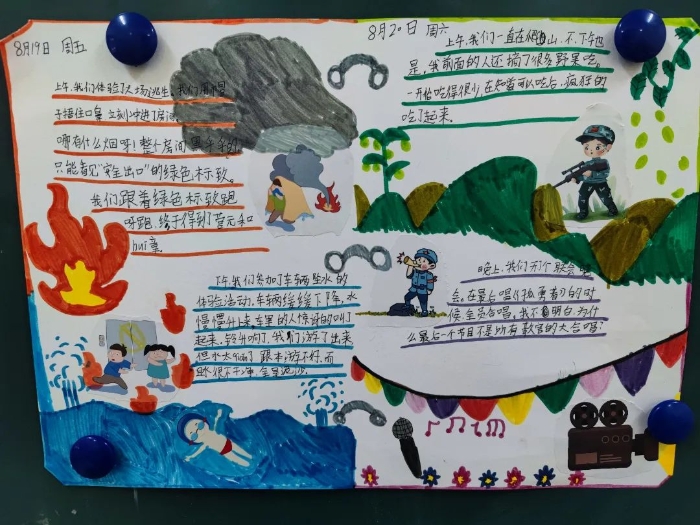 8月19日 周五
上午,我们体验了火场逃生,我们用
子捂住口鼻 立刻冲进了房间
哪有什么烟呀!整个房间
只能看见“安全出口”的绿色标示。
我们跟着绿色标示跑
呀跑,终于得到了
hui章
下午,我们参加了车辆坠水的
体验活动,车辆缓缓下降,水
慢慢升上来车里的人惊讶的叫
起来,铃响了,我们游了出来
但水太 跟本游不好,而
且水很不干净,全是泥沙。
8月20日 周六
上午,我们一直在爬山,不
是,我前面的人还摘了很多野果吃。
一开始吃得很少,在知道可以吃后,疯狂的
吃了起来。
晚上,我们开个联会
会。在最后唱《孤勇者》的时
候,全员合唱,我不道明白,为什
么最后一个节目不是所有教官的大合唱?